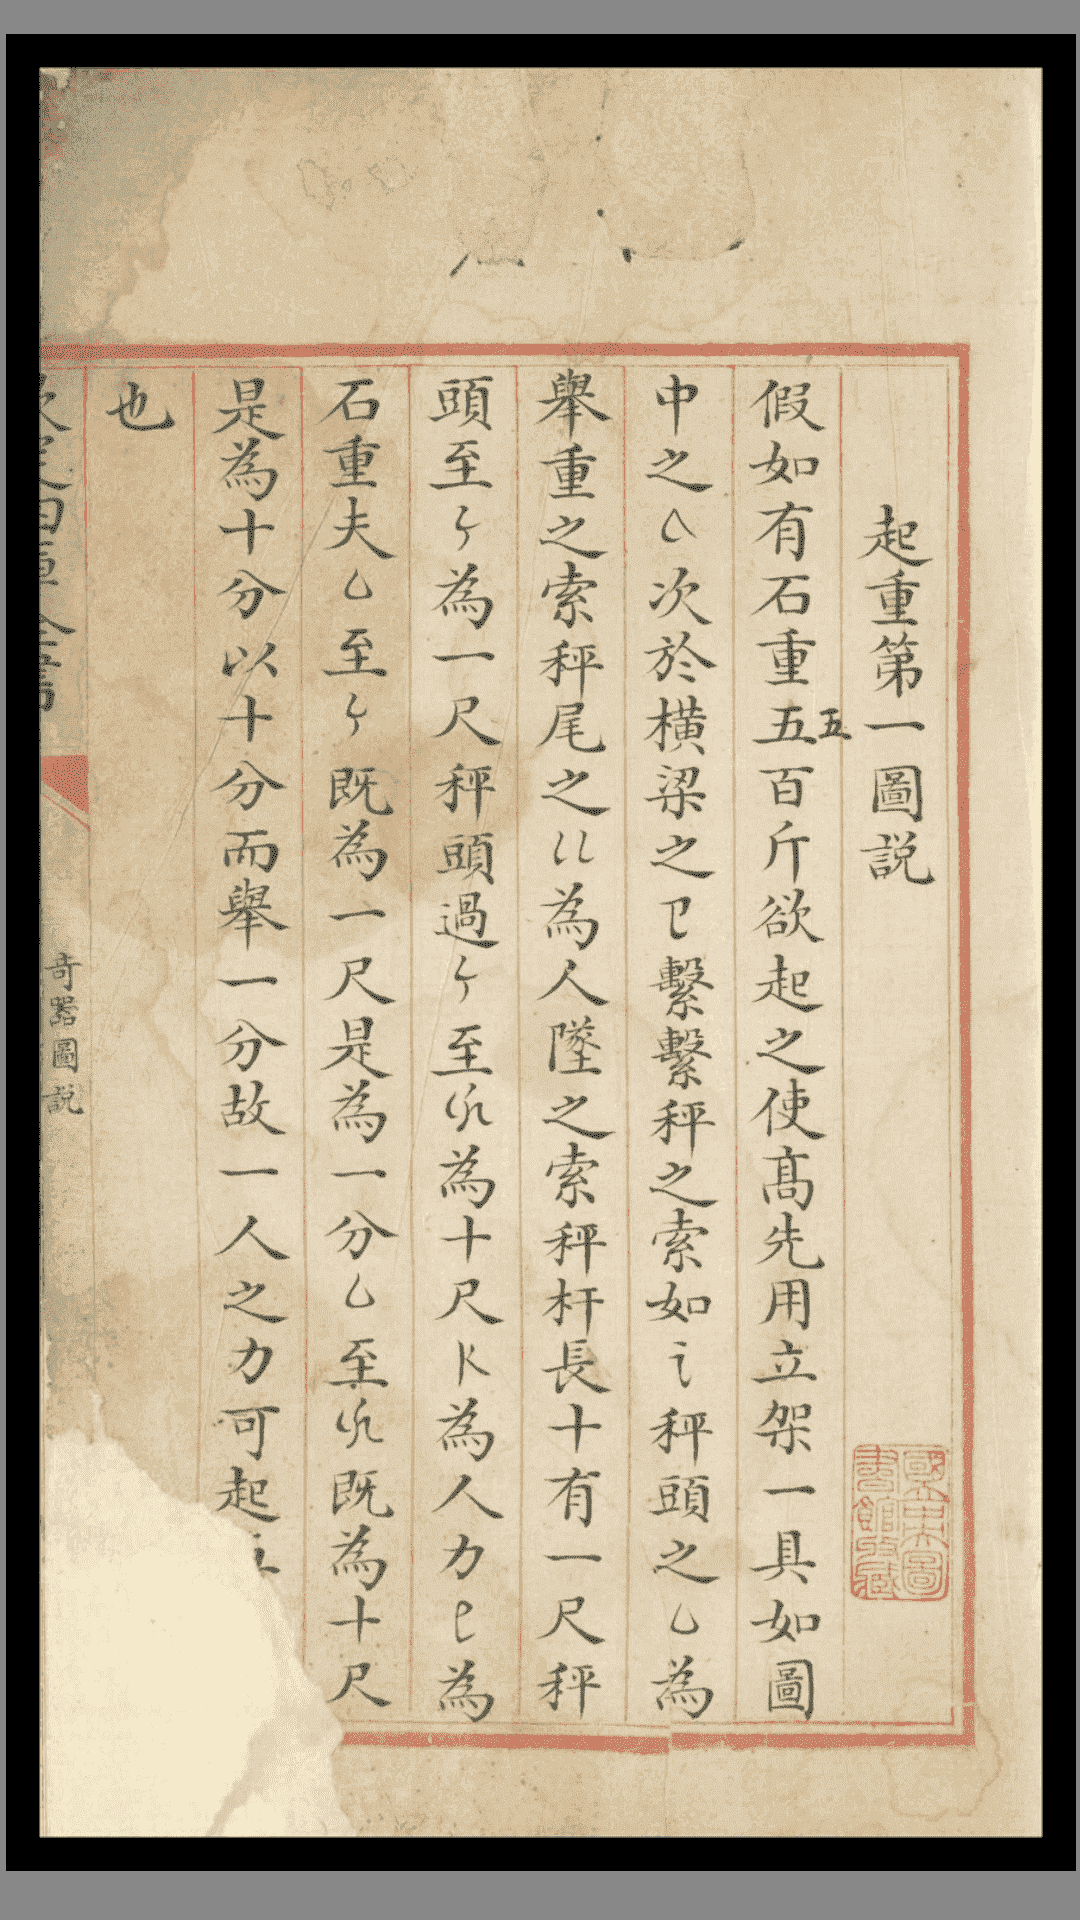 起重第一圖説
國立中央圖
書館收藏
假如有石重五百斤欲起之使髙先用立架一具如圖
五
中之次於横梁之繫繫秤之索如秤頭之乚為
舉重之索秤尾之為人墜之索秤杆長十有一尺秤
頭至為一尺秤頭過至為十尺為人力為
石重夫乚至既為一尺是為一分乚至既為十尺
是為十分以十分而舉一分故一人之力可起五
也
欽定四庫全書
奇器圖説